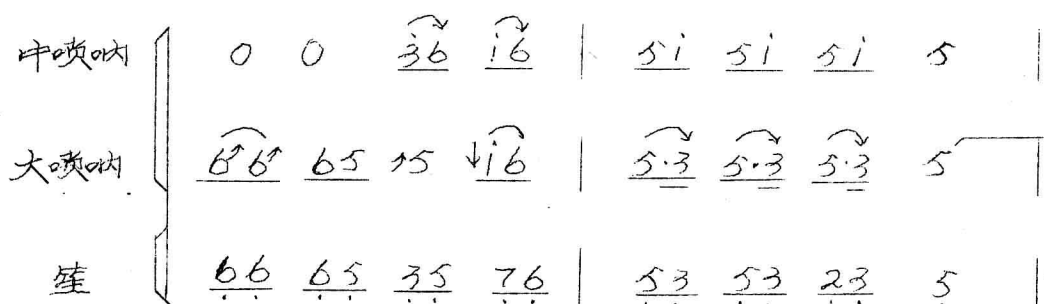 中唢呐 0 0 3̇6 i6 | 51̇ 51̇ 51̇ 5 |
大唢呐 6↗6↗ 65 ↗5 ↓1̇6 | 5·3 5·3 5·3 5 |
笙 6̣6̣ 6̣5̣ 3̣5̣ 7̣6̣ | 5̣3̣ 5̣3̣ 2̣3̣ 5̣